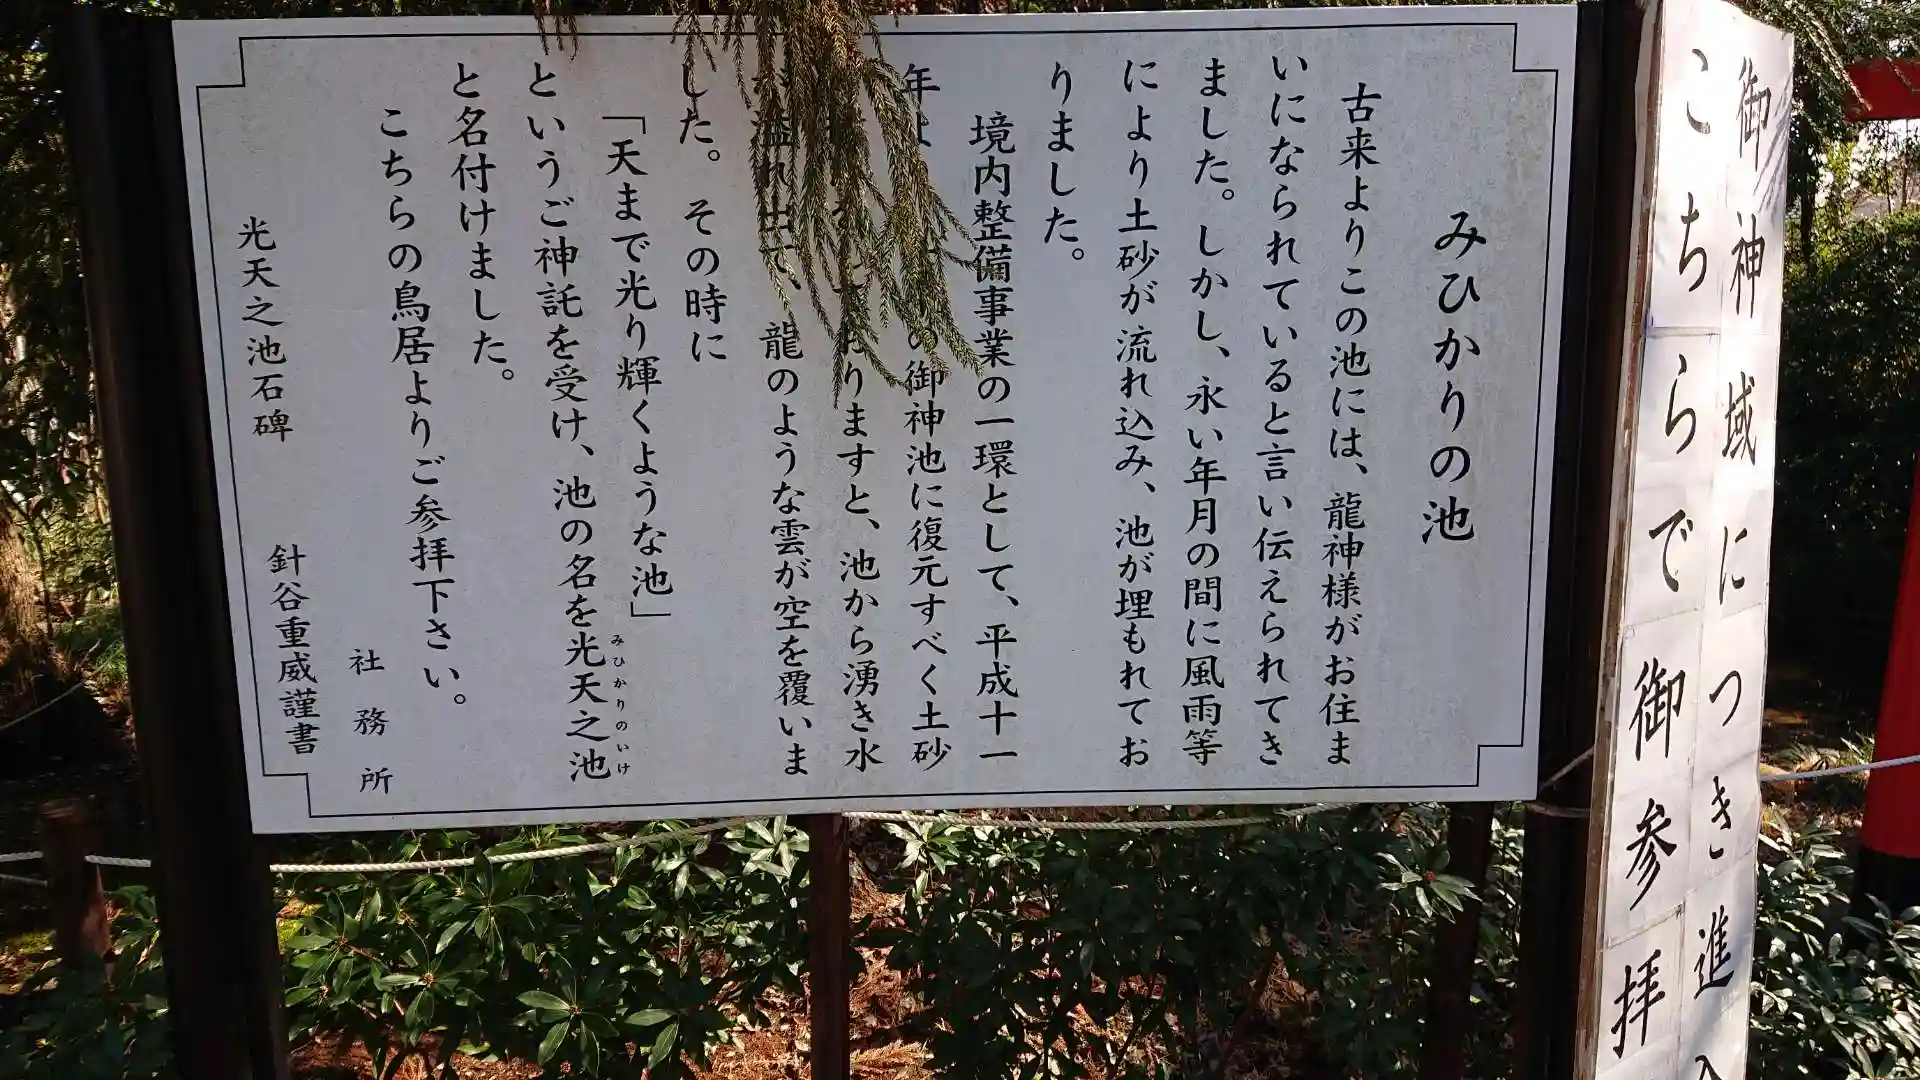 御神域につき進入
こちらで御参拝
みひかりの池
古来よりこの池には、龍神様がお住ま
いになられていると言い伝えられてき
ました。しかし、永い年月の間に風雨等
により土砂が流れ込み、池が埋もれてお
りました。
境内整備事業の一環として、平成十一
年よ の御神池に復元すべく土砂
しておりますと、池から湧き水
溢れ出て、龍のような雲が空を覆いま
した。その時に
「天まで光り輝くような池」
というご神託を受け、池の名を光天之池
みひかりのいけ
と名付けました。
こちらの鳥居よりご参拝下さい。
社務所
光天之池石碑 針谷重威謹書